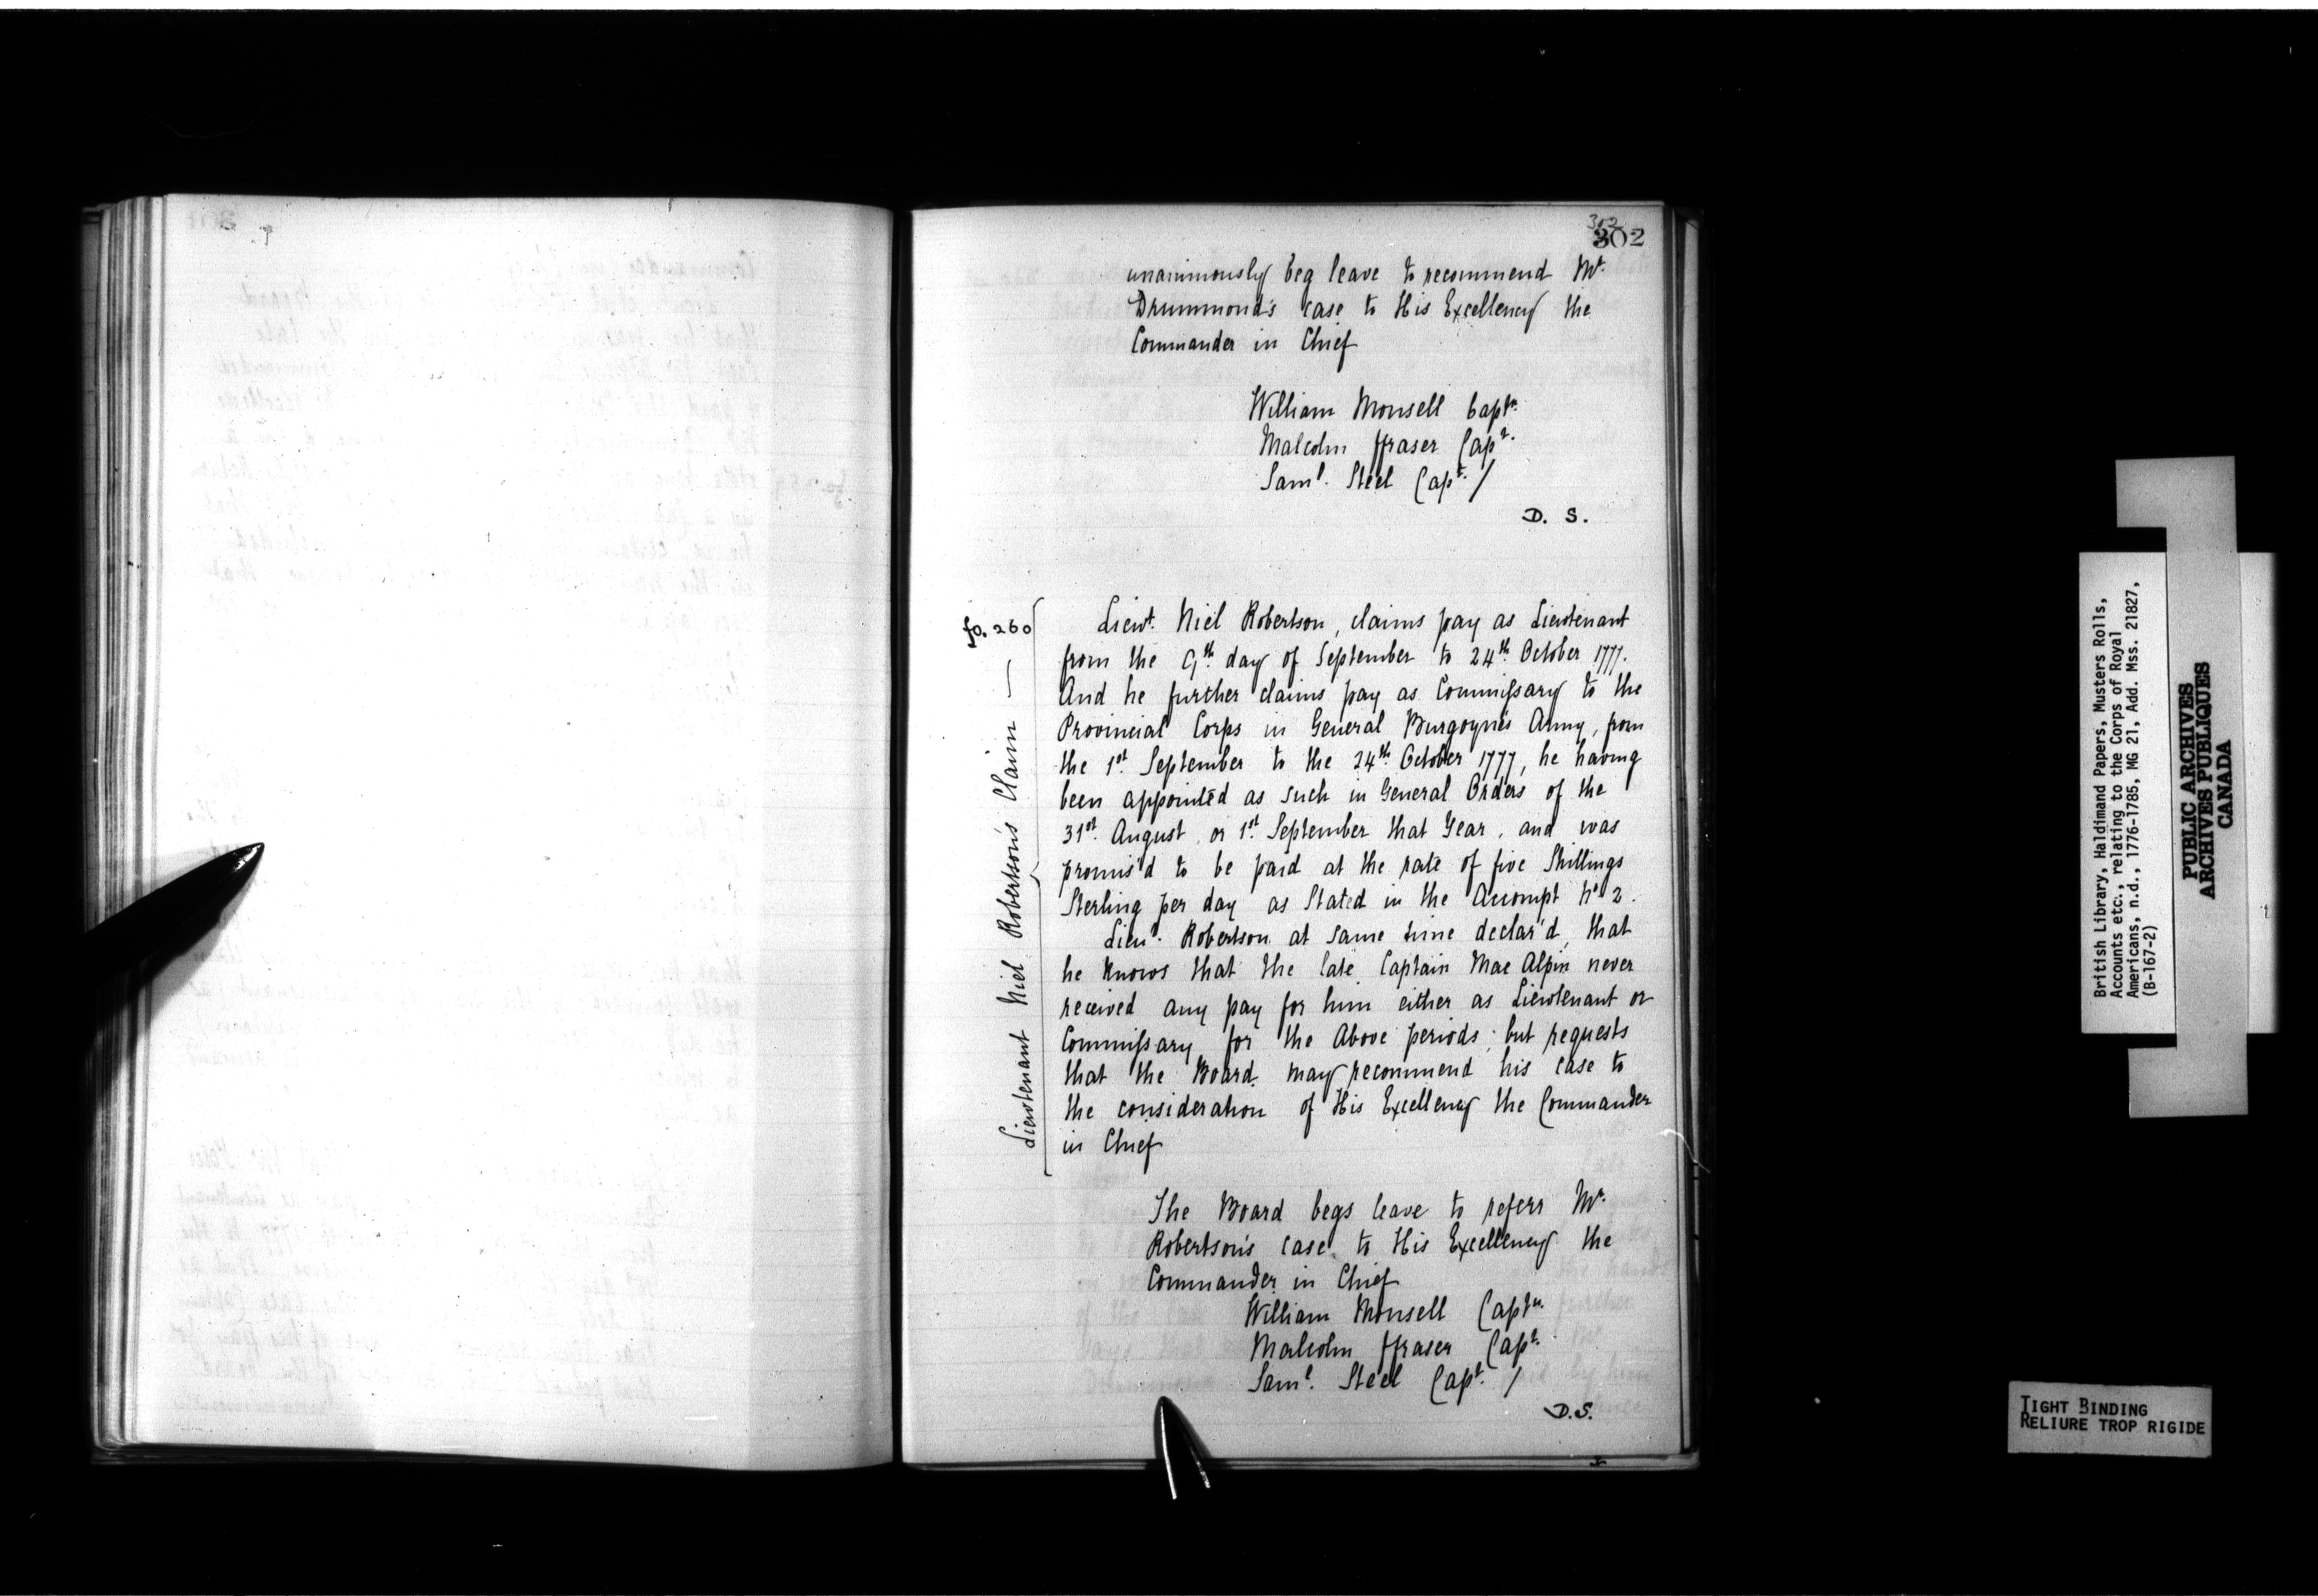 302
302
unanimously beg leave to recommend Mr.
Drummond's case to His Excellency the
Commander in Chief
William Monsell Captn.
Malcolm ffraser Capt.
Saml. Steel Capt. /
D. S.
fo. 260
Lieutenant Niel Robertson's Claim —
Lieut. Niel Robertson, claims pay as Lieutenant
from the 9th. day of September to 24th. October 1777.
And he further claims pay as Commissary to the
Provincial Corps in General Burgoyne's Army, from
the 1st. September to the 24th. October 1777, he having
been appointed as such in General Orders of the
31st. August, or 1st. September that Year, and was
promis'd to be paid at the rate of five Shillings
Sterling per day as Stated in the Accompt No. 2.
Lieut. Robertson at same time declar'd, that
he knows that the late Captain Mac Alpin never
received any pay for him either as Lieutenant or
Commissary for the Above periods; but requests
that the Board may recommend his case to
the consideration of His Excellency the Commander
in Chief
The Board begs leave to referr Mr.
Robertson's case to His Excellency the
Commander in Chief
William Monsell Captn.
Malcolm ffraser Capt.
Saml. Steel Capt. /
D.S.
British Library, Haldimand Papers, Musters Rolls,
Accounts etc., relating to the Corps of Royal
Americans, n.d., 1776-1785, MG 21, Add. Mss. 21827,
(B-167-2)
PUBLIC ARCHIVES
ARCHIVES PUBLIQUES
CANADA
TIGHT BINDING
RELIURE TROP RIGIDE